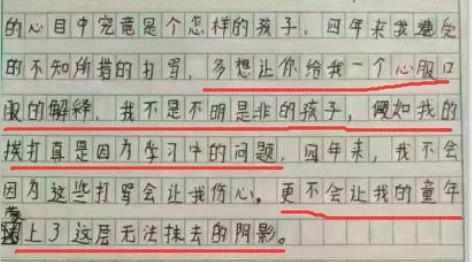 的心目中究竟是个怎样的孩子。四年来我遭受
的不知所措的打骂，多想让你给我一个心服口
服的解释，我不是不明是非的孩子，假如我的
挨打真是因为学习中的问题，四年来，我不会
因为这些打骂会让我伤心。更不会让我的童年
蒙上了这层无法抹去的阴影。